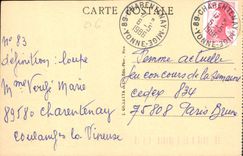 CARTE POSTALE
89-CHARENTENAY-YONNE
89-CHARENTENAY-YONNE
No 83
définition: loupe
Mme Vergé Marie
89580 Charentenay
Coulanges la Vineuse
Femme actuelle
Jeu concours de la Semaine
cedex 834
75808 Paris Brune